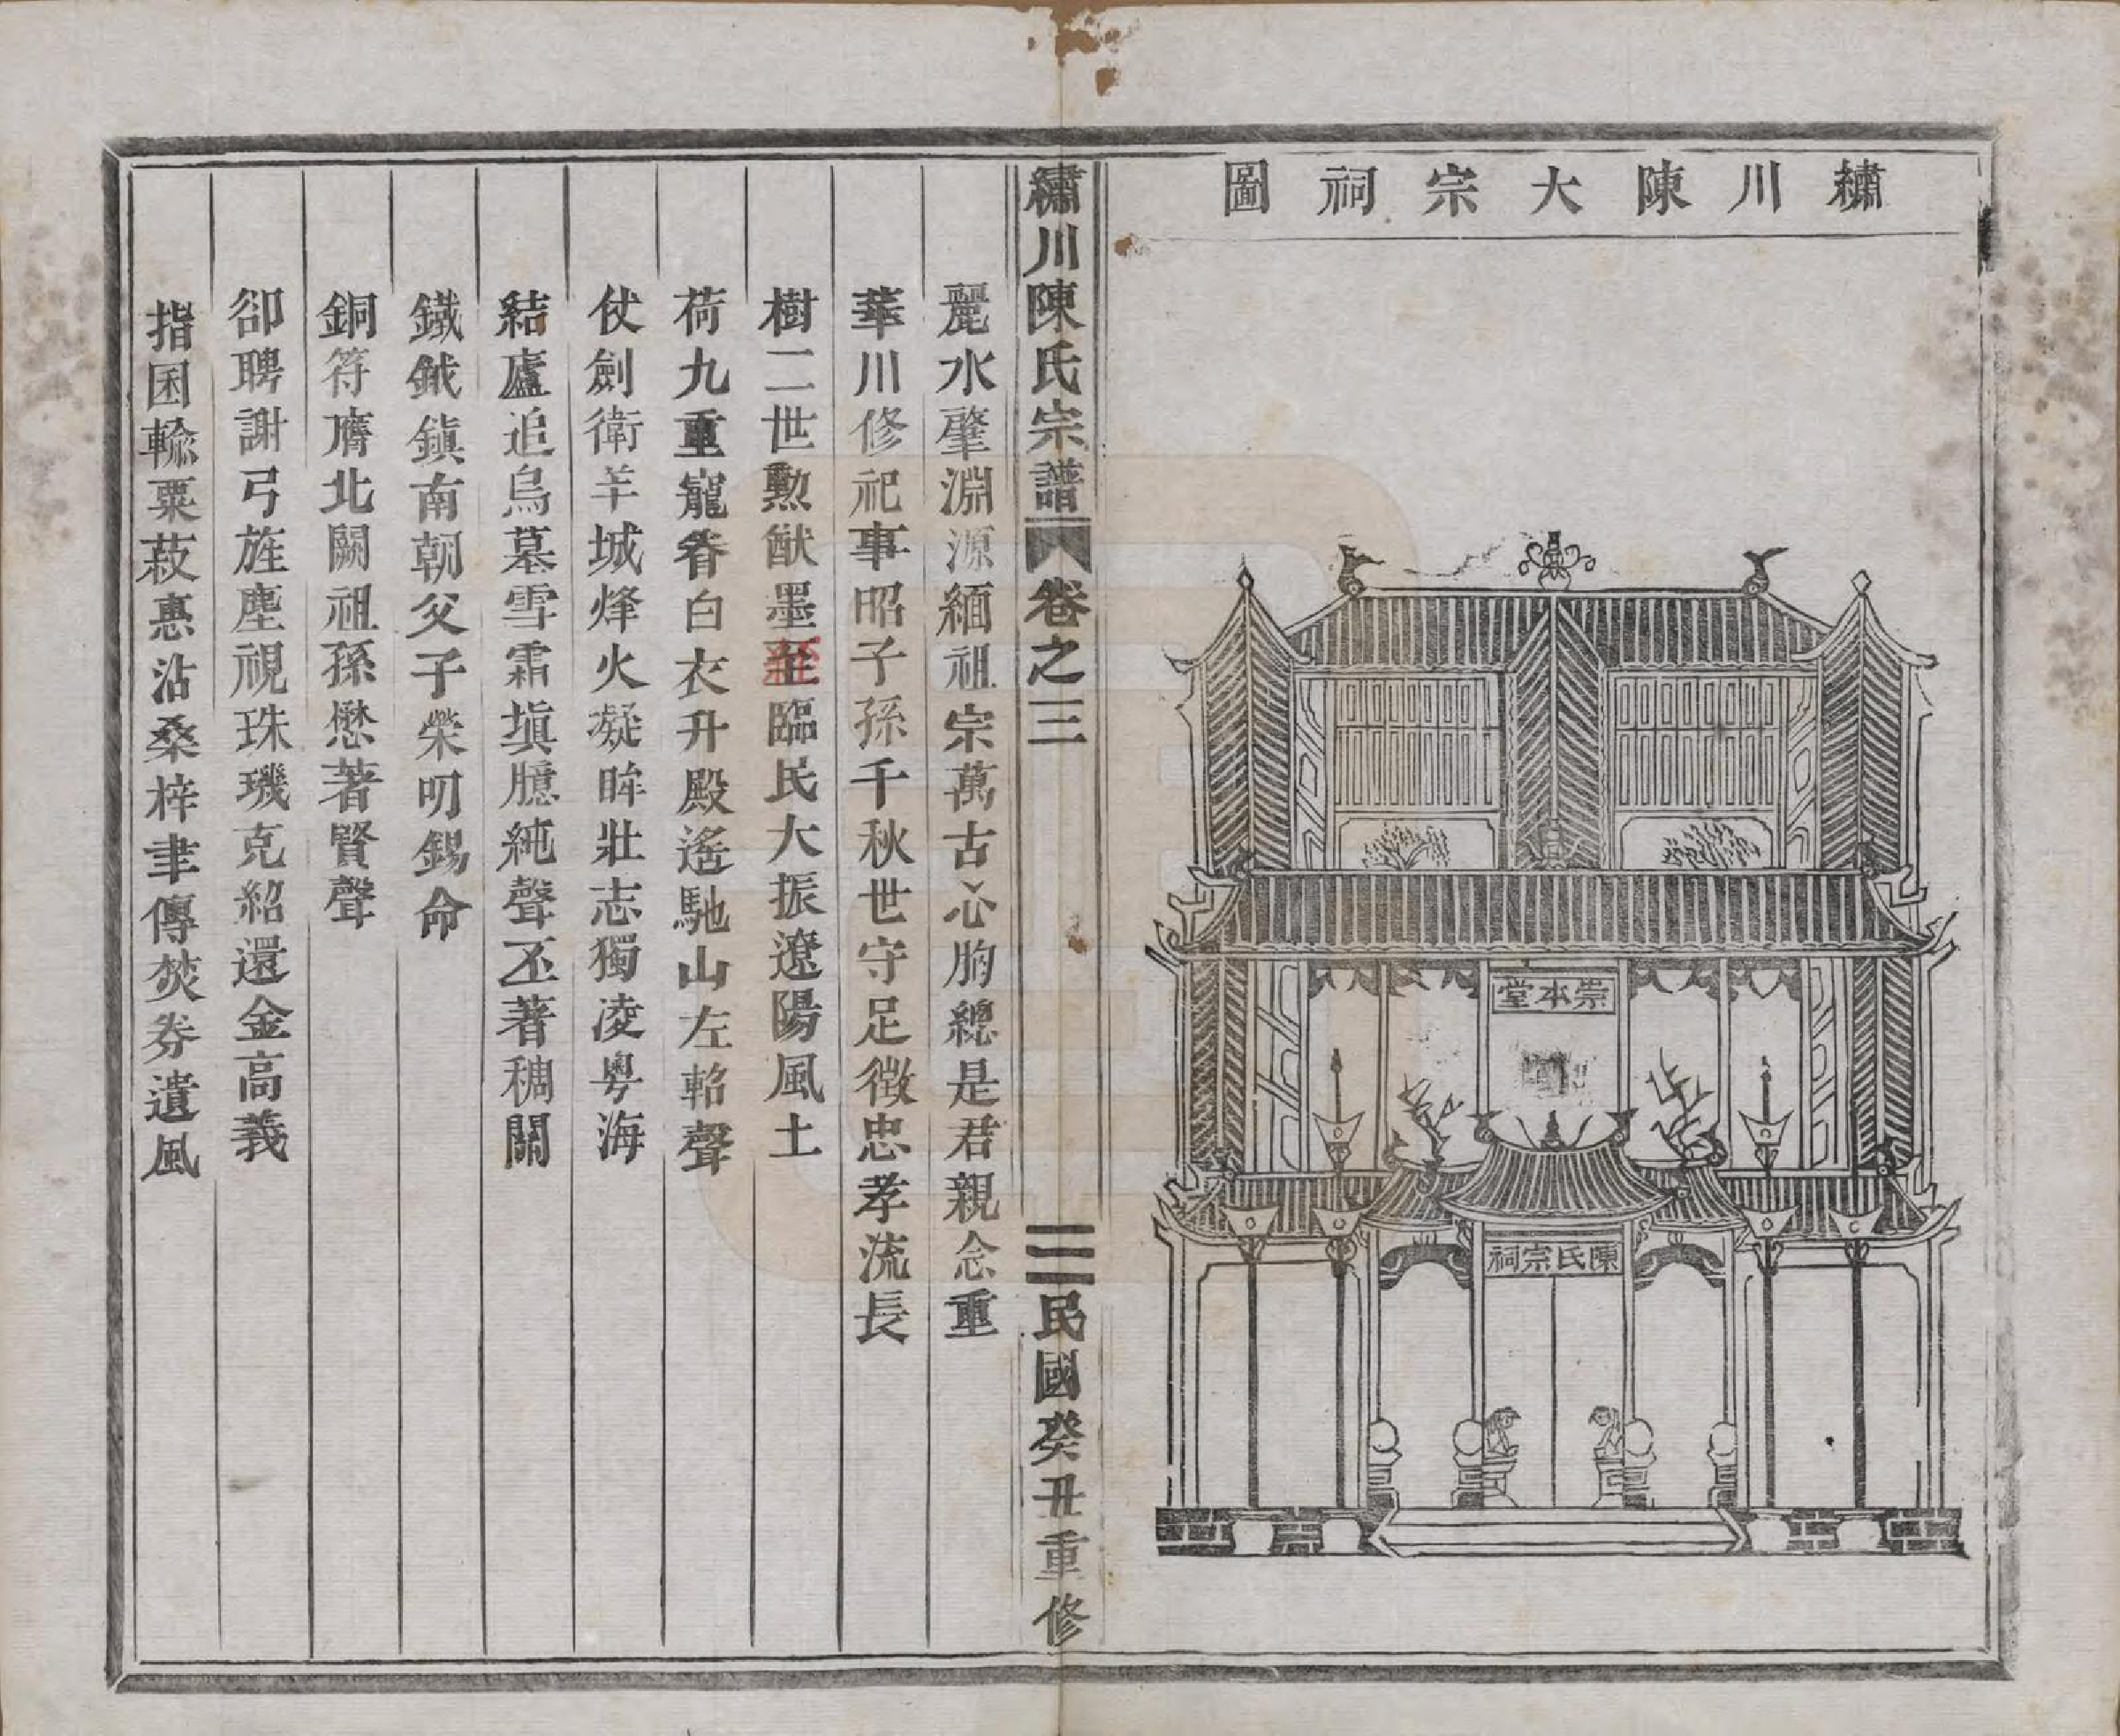 繡川陳大宗祠圖
崇本堂
陳氏宗祠
繡川陳氏宗譜 卷之三 民國癸丑重修
麗水肇淵源緬祖宗萬古心胸總是君親念重
華川修祀事昭子孫千秋世守足徵忠孝流長
樹二世勲猷墨絰臨民大振遼陽風土
荷九重寵眷白衣升殿遙馳山左軺聲
仗劍衛羊城烽火凝眸壯志獨凌粵海
結廬追烏墓雪霜塡臆純聲丕著稠關
鐵鉞鎮南朝父子榮叨錫命
銅符膺北闕祖孫懋著賢聲
卻聘謝弓旌塵視珠璣克紹還金高義
指囷輸粟菽惠沾桑梓聿傳焚券遺風